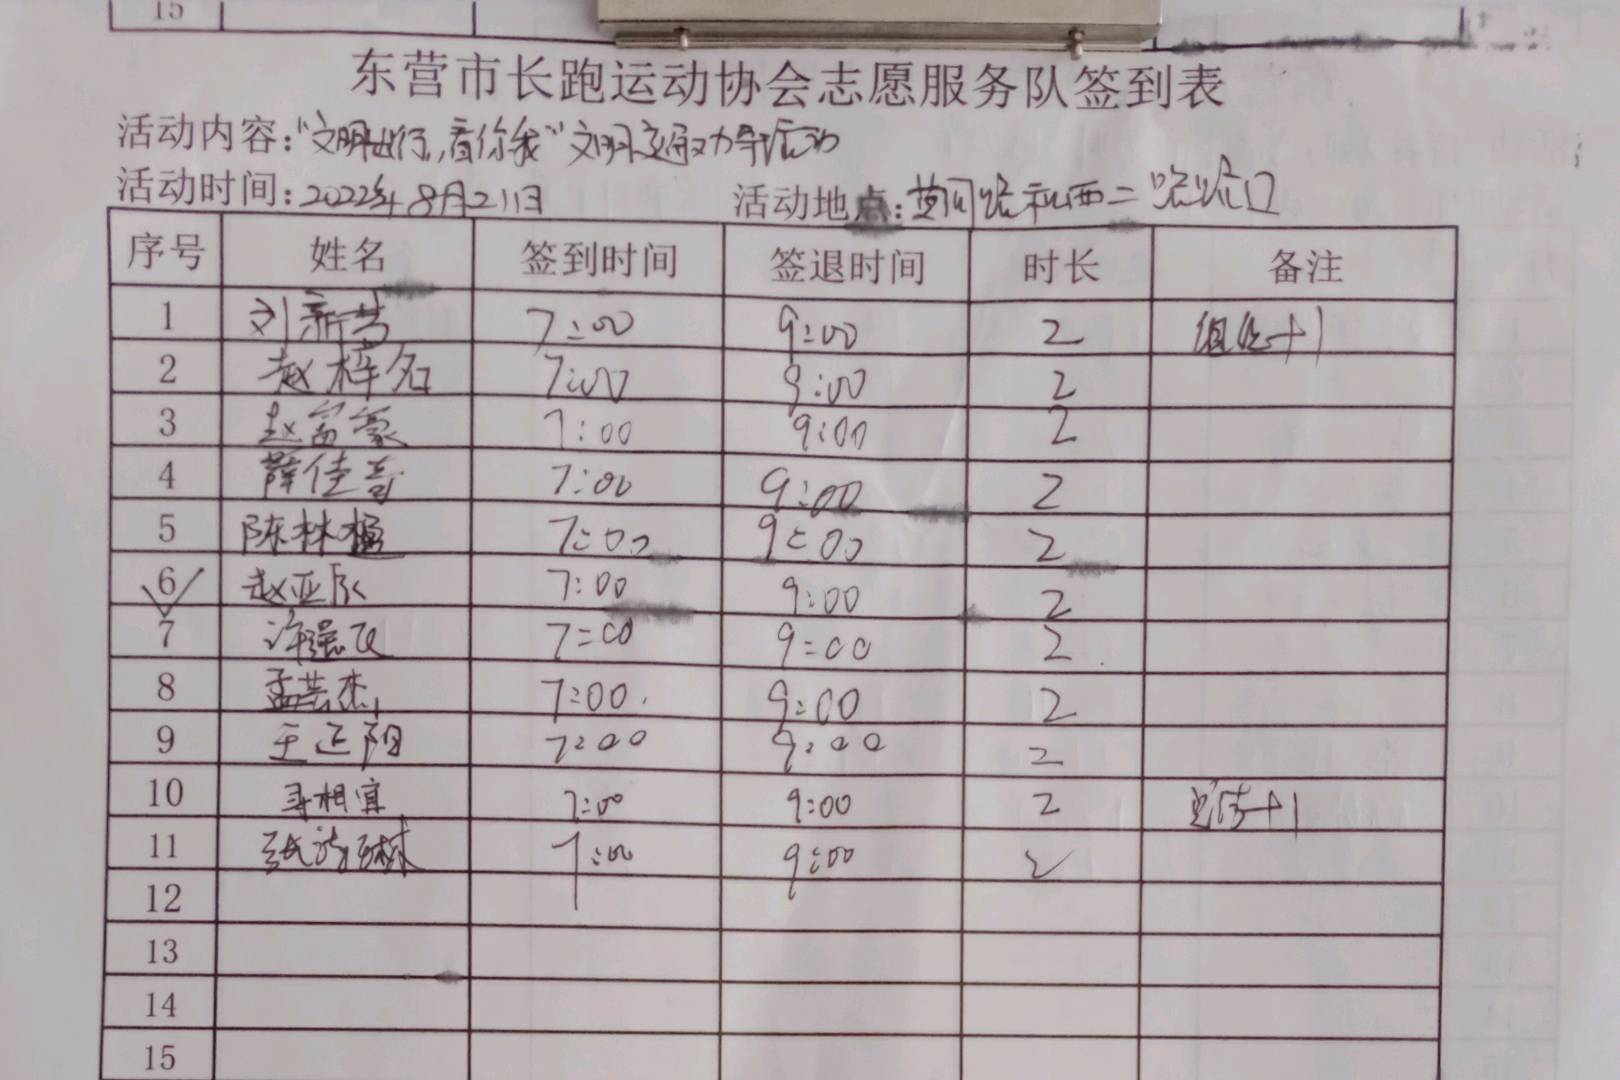 15
东营市长跑运动协会志愿服务队签到表
活动内容:“文明出行,看你我”文明交通劝导活动
活动时间:2022年8月21日 活动地点:黄河路和西二路路口
序号 姓名 签到时间 签退时间 时长 备注
1 刘新芳 7:00 9:00 2 组织+1
2 赵梓名 7:00 9:00 2
3 赵富豪 7:00 9:00 2
4 薛佳奇 7:00 9:00 2
5 陈林 7:00 9:00 2
6 赵亚 7:00 9:00 2
7 许强飞 7:00 9:00 2
8 孟芸杰 7:00 9:00 2
9 王正阳 7:00 9:00 2
10 寻相宜 7:00 9:00 2 +1
11 张 7:00 9:00 2
12
13
14
15